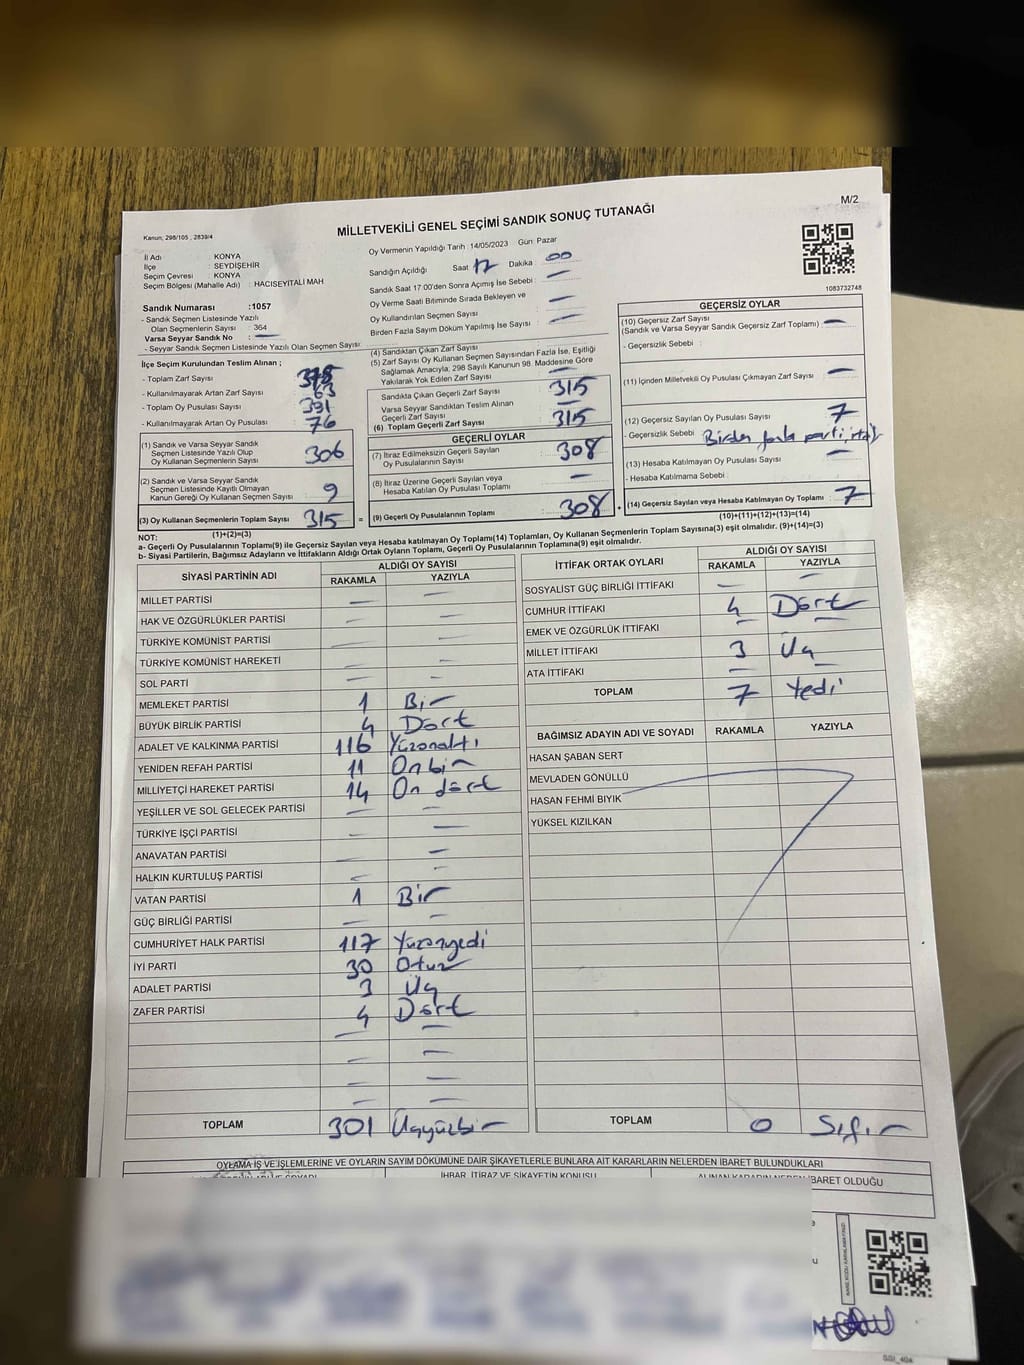 M/2
MİLLETVEKİLİ GENEL SEÇİMİ SANDIK SONUÇ TUTANAĞI
Kanun; 298/105 , 2839/4
İl Adı : KONYA
İlçe : SEYDİŞEHİR
Seçim Çevresi : KONYA
Seçim Bölgesi (Mahalle Adı) : HACISEYİTALİ MAH
Oy Vermenin Yapıldığı Tarih : 14/05/2023 Gün: Pazar
Sandığın Açıldığı Saat 17 Dakika : 00
Sandık Saat 17:00'den Sonra Açımış İse Sebebi : —
Oy Verme Saati Bitiminde Sırada Bekleyen ve
Oy Kullandırılan Seçmen Sayısı : —
Birden Fazla Sayım Döküm Yapılmış İse Sayısı : —
1083732748
Sandık Numarası :1057
- Sandık Seçmen Listesinde Yazılı
Olan Seçmenlerin Sayısı : 364
Varsa Seyyar Sandık No : —
- Seyyar Sandık Seçmen Listesinde Yazılı Olan Seçmen Sayısı :
İlçe Seçim Kurulundan Teslim Alınan ;
- Toplam Zarf Sayısı :
- Kullanılmayarak Artan Zarf Sayısı : 63
- Toplam Oy Pusulası Sayısı : 391
- Kullanılmayarak Artan Oy Pusulası : 76
(1) Sandık ve Varsa Seyyar Sandık
Seçmen Listesinde Yazılı Olup
Oy Kullanan Seçmenlerin Sayısı : 306
(2) Sandık ve Varsa Seyyar Sandık
Seçmen Listesinde Kayıtlı Olmayan
Kanun Gereği Oy Kullanan Seçmen Sayısı : 9
(3) Oy Kullanan Seçmenlerin Toplam Sayısı : 315
(1)+(2)=(3)
(4) Sandıktan Çıkan Zarf Sayısı :
(5) Zarf Sayısı Oy Kullanan Seçmen Sayısından Fazla İse, Eşitliği
Sağlamak Amacıyla, 298 Sayılı Kanunun 98. Maddesine Göre
Yakılarak Yok Edilen Zarf Sayısı : —
Sandıkta Çıkan Geçerli Zarf Sayısı : 315
Varsa Seyyar Sandıktan Teslim Alınan
Geçerli Zarf Sayısı : —
(6) Toplam Geçerli Zarf Sayısı : 315
GEÇERLİ OYLAR
(7) İtiraz Edilmeksizin Geçerli Sayılan
Oy Pusulalarının Sayısı : 308
(8) İtiraz Üzerine Geçerli Sayılan veya
Hesaba Katılan Oy Pusulası Toplamı : —
= (9) Geçerli Oy Pusulalarının Toplamı : 308 +
GEÇERSİZ OYLAR
(10) Geçersiz Zarf Sayısı
(Sandık ve Varsa Seyyar Sandık Geçersiz Zarf Toplamı) : —
- Geçersizlik Sebebi :
(11) İçinden Milletvekili Oy Pusulası Çıkmayan Zarf Sayısı : —
(12) Geçersiz Sayılan Oy Pusulası Sayısı : 7
- Geçersizlik Sebebi : Birden fazla parti
(13) Hesaba Katılmayan Oy Pusulası Sayısı : —
- Hesaba Katılmama Sebebi :
(14) Geçersiz Sayılan veya Hesaba Katılmayan Oy Toplamı : 7
(10)+(11)+(12)+(13)=(14)
NOT:
a- Geçerli Oy Pusulalarının Toplamı(9) ile Geçersiz Sayılan veya Hesaba katılmayan Oy Toplamı(14) Toplamları, Oy Kullanan Seçmenlerin Toplam Sayısına(3) eşit olmalıdır. (9)+(14)=(3)
b- Siyasi Partilerin, Bağımsız Adayların ve İttifakların Aldığı Ortak Oyların Toplamı, Geçerli Oy Pusulalarının Toplamına(9) eşit olmalıdır.
SİYASİ PARTİNİN ADI ALDIĞI OY SAYISI
RAKAMLA YAZIYLA
MİLLET PARTİSİ — —
HAK VE ÖZGÜRLÜKLER PARTİSİ — —
TÜRKİYE KOMÜNİST PARTİSİ — —
TÜRKİYE KOMÜNİST HAREKETİ — —
SOL PARTİ — —
MEMLEKET PARTİSİ 1 Bir
BÜYÜK BİRLİK PARTİSİ 4 Dört
ADALET VE KALKINMA PARTİSİ 116 Yüzonaltı
YENİDEN REFAH PARTİSİ 11 Onbir
MİLLİYETÇİ HAREKET PARTİSİ 14 On dört
YEŞİLLER VE SOL GELECEK PARTİSİ — —
TÜRKİYE İŞÇİ PARTİSİ — —
ANAVATAN PARTİSİ — —
HALKIN KURTULUŞ PARTİSİ — —
VATAN PARTİSİ 1 Bir
GÜÇ BİRLİĞİ PARTİSİ — —
CUMHURİYET HALK PARTİSİ 117 Yüzonyedi
İYİ PARTİ 30 Otuz
ADALET PARTİSİ 3 Üç
ZAFER PARTİSİ 4 Dört
— —
— —
— —
— —
TOPLAM 301 Üçyüzbir
İTTİFAK ORTAK OYLARI ALDIĞI OY SAYISI
RAKAMLA YAZIYLA
SOSYALİST GÜÇ BİRLİĞİ İTTİFAKI — —
CUMHUR İTTİFAKI 4 Dört
EMEK VE ÖZGÜRLÜK İTTİFAKI — —
MİLLET İTTİFAKI 3 Üç
ATA İTTİFAKI — —
TOPLAM 7 Yedi
BAĞIMSIZ ADAYIN ADI VE SOYADI ALDIĞI OY SAYISI
RAKAMLA YAZIYLA
HASAN ŞABAN SERT
MEVLADEN GÖNÜLLÜ
HASAN FEHMİ BIYIK
YÜKSEL KIZILKAN
TOPLAM 0 Sıfır
OYLAMA İŞ VE İŞLEMLERİNE VE OYLARIN SAYIM DÖKÜMÜNE DAİR ŞİKAYETLERLE BUNLARA AİT KARARLARIN NELERDEN İBARET BULUNDUKLARI
İHBAR, İTİRAZ VE ŞİKAYETİN KONUSU
İBARET OLDUĞU